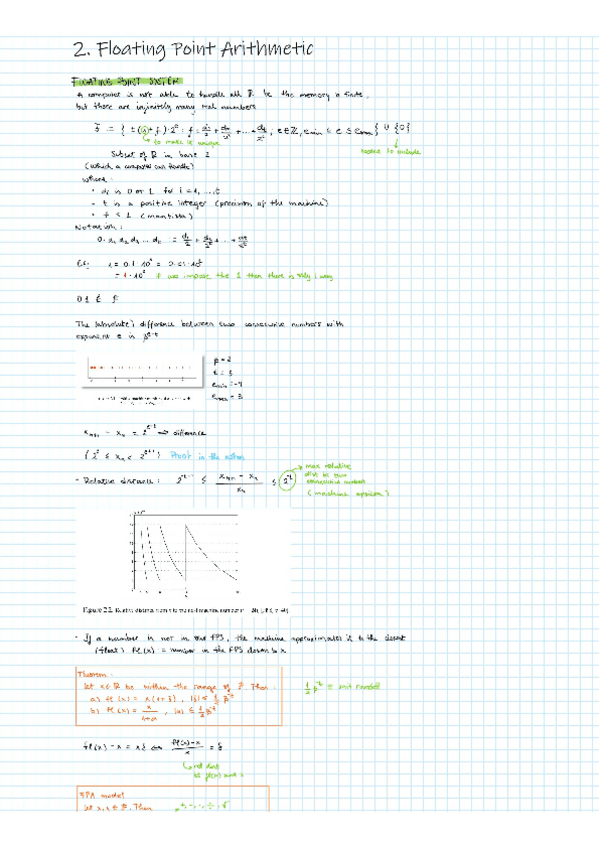 2. Floating Point Arithmetic
FLOATING POINT SYSTEM
A computer is not able to handle all ℝ be the memory is finite,
but there are infinitely many real numbers
𝔽 = { ±(1 + f)·2^e : f = d1/2 + d2/2² + ... + dt/2^t, e ∈ ℤ, emin ≤ e ≤ emax } ∪ {0}
to make it unique
needed to include
Subset of ℝ in base 2
(which a computer can handle)
where:
• di is 0 or 1 for i = 1, ..., t
• t is a positive integer (precision of the machine)
• f < 1 (mantissa)
Notation:
0. d1 d2 d3 ... dt = d1/2 + d2/2² + ... + dt/2^t
1 = 0.1 · 10 = 0.01 · 10²
= 1 · 10⁰ if we impose the 1 then there is only 1 way
The (absolute) difference between two consecutive numbers with
exponent e is β^(e-t)
β = 2
t = 3
emax = 3
x_{n+1} - x_n = 2^(e-t) ⇒ difference
(2^e ≤ x_n < 2^(e+1)) Proof in the notes
- Relative distance: ≤ (x_{n+1} - x_n)/x_n ≤ 2^-t
max relative
dist in two
consecutive numbers
(machine epsilon)
- If a number is not in the FPS, the machine approximates it to the closest
(float) fl(x) = number in the FPS closest to x
Theorem:
Let x ∈ ℝ be within the range of 𝔽. Then:
a) fl(x) = x(1+δ), |δ| ≤ 1/2 β^-t
b) fl(x) = x/(1+α), |α| ≤ 1/2 β^-t
1/2 β^-t = unit roundoff
fl(x) - x = xδ ⇔ (fl(x)-x)/x = δ
rel dist
FPA model
Let x, y ∈ 𝔽. Then